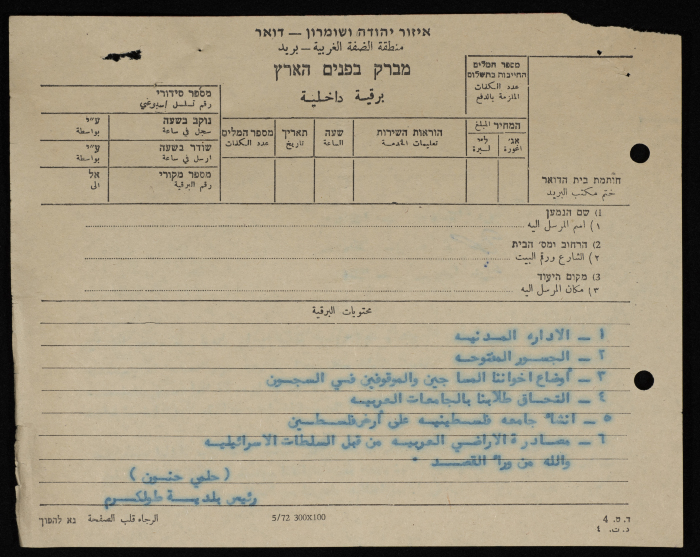 איזור יהודה ושומרון — דואר
منطقة الضفة الغربية — بريد
מברק בפנים הארץ
برقية داخلية
מספר המלים
החייבות בתשלום
عدد الكلمات
الملزمة بالدفع
המחיר المبلغ
אג׳ ل״י
اجورة ليرة
הוראות השירות
تعليمات الخدمة
שעה
الساعة
תאריך
تاريخ
מספר המלים
عدد الكلمات
מספר סידורי
رقم تسلسل اسبوعي
נוקב בשעה ע״י
سجل في ساعة بواسطة
שודר בשעה ע״י
ارسل في ساعة بواسطة
מספר מקורי אל
رقم البرقية الى
חותמת בית הדואר
ختم مكتب البريد
1) שם הנמען
١) اسم المرسل اليه
2) הרחוב ומס׳ הבית
٢) الشارع ورقم البيت
3) מקום היעוד
٣) مكان المرسل اليه
محتويات البرقية
١ – الاداره المدنيه
٢ – الجسور المفتوحه
٣ – أوضاع اخواننا المساجين والموقوفين في السجون
٤ – التحاق طلابنا بالجامعات العربيه
٥ – انشاء جامعه فلسطينيه على أرض فلسطين
٦ – مصادرة الاراضي العربيه من قبل السلطات الاسرائيليه
والله من وراء القصد .
( حلمي حنون )
رئيس بلدية طولكرم
ד. מ. 4
د. ت. ٤
5/72 300X100
الرجاء قلب الصفحة נא להפוך